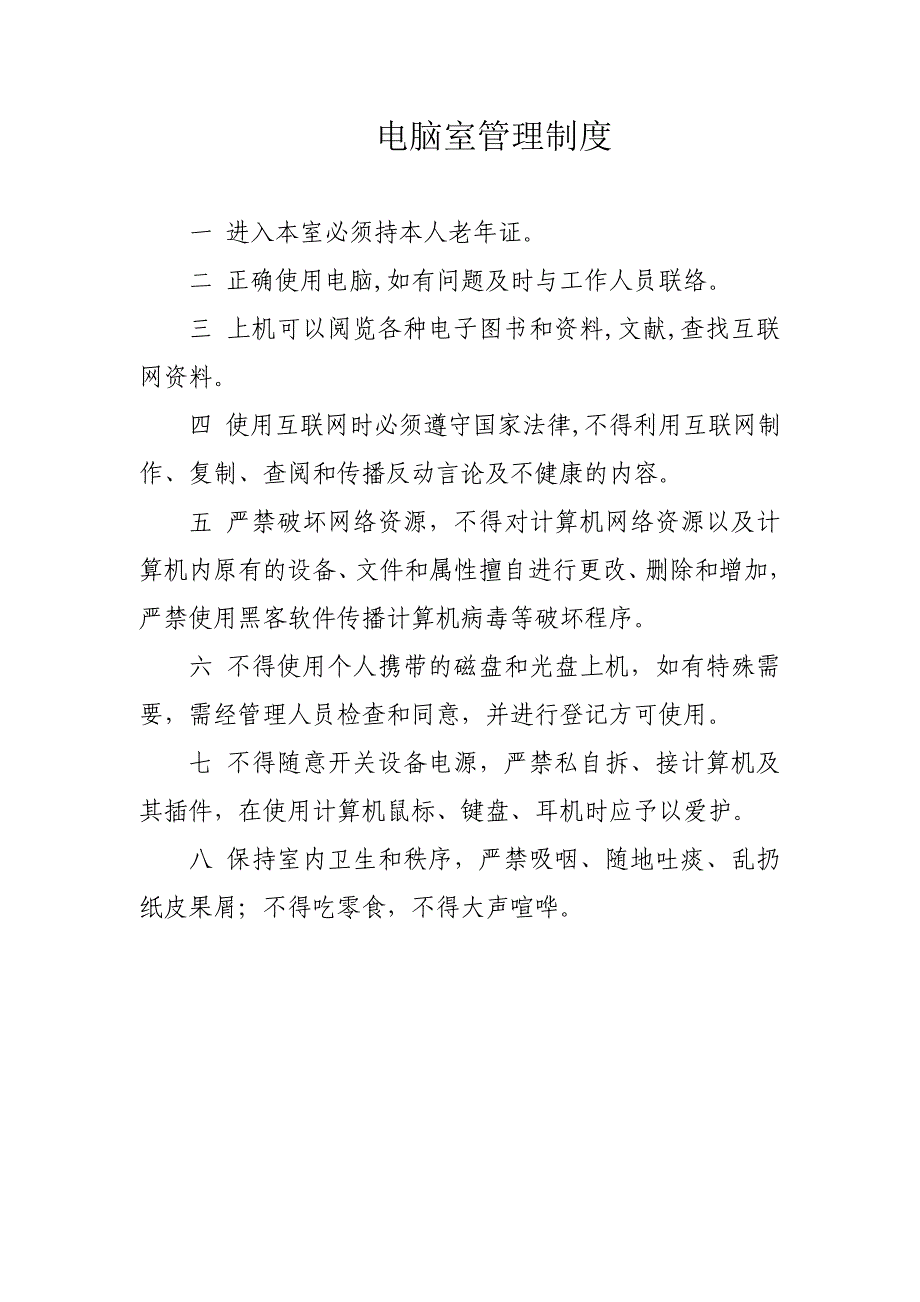 电脑室管理制度
一 进入本室必须持本人老年证。
二 正确使用电脑,如有问题及时与工作人员联络。
三 上机可以阅览各种电子图书和资料,文献,查找互联
网资料。
四 使用互联网时必须遵守国家法律,不得利用互联网制
作、复制、查阅和传播反动言论及不健康的内容。
五 严禁破坏网络资源，不得对计算机网络资源以及计
算机内原有的设备、文件和属性擅自进行更改、删除和增加，
严禁使用黑客软件传播计算机病毒等破坏程序。
六 不得使用个人携带的磁盘和光盘上机，如有特殊需
要，需经管理人员检查和同意，并进行登记方可使用。
七 不得随意开关设备电源，严禁私自拆、接计算机及
其插件，在使用计算机鼠标、键盘、耳机时应予以爱护。
八 保持室内卫生和秩序，严禁吸咽、随地吐痰、乱扔
纸皮果屑；不得吃零食，不得大声喧哗。